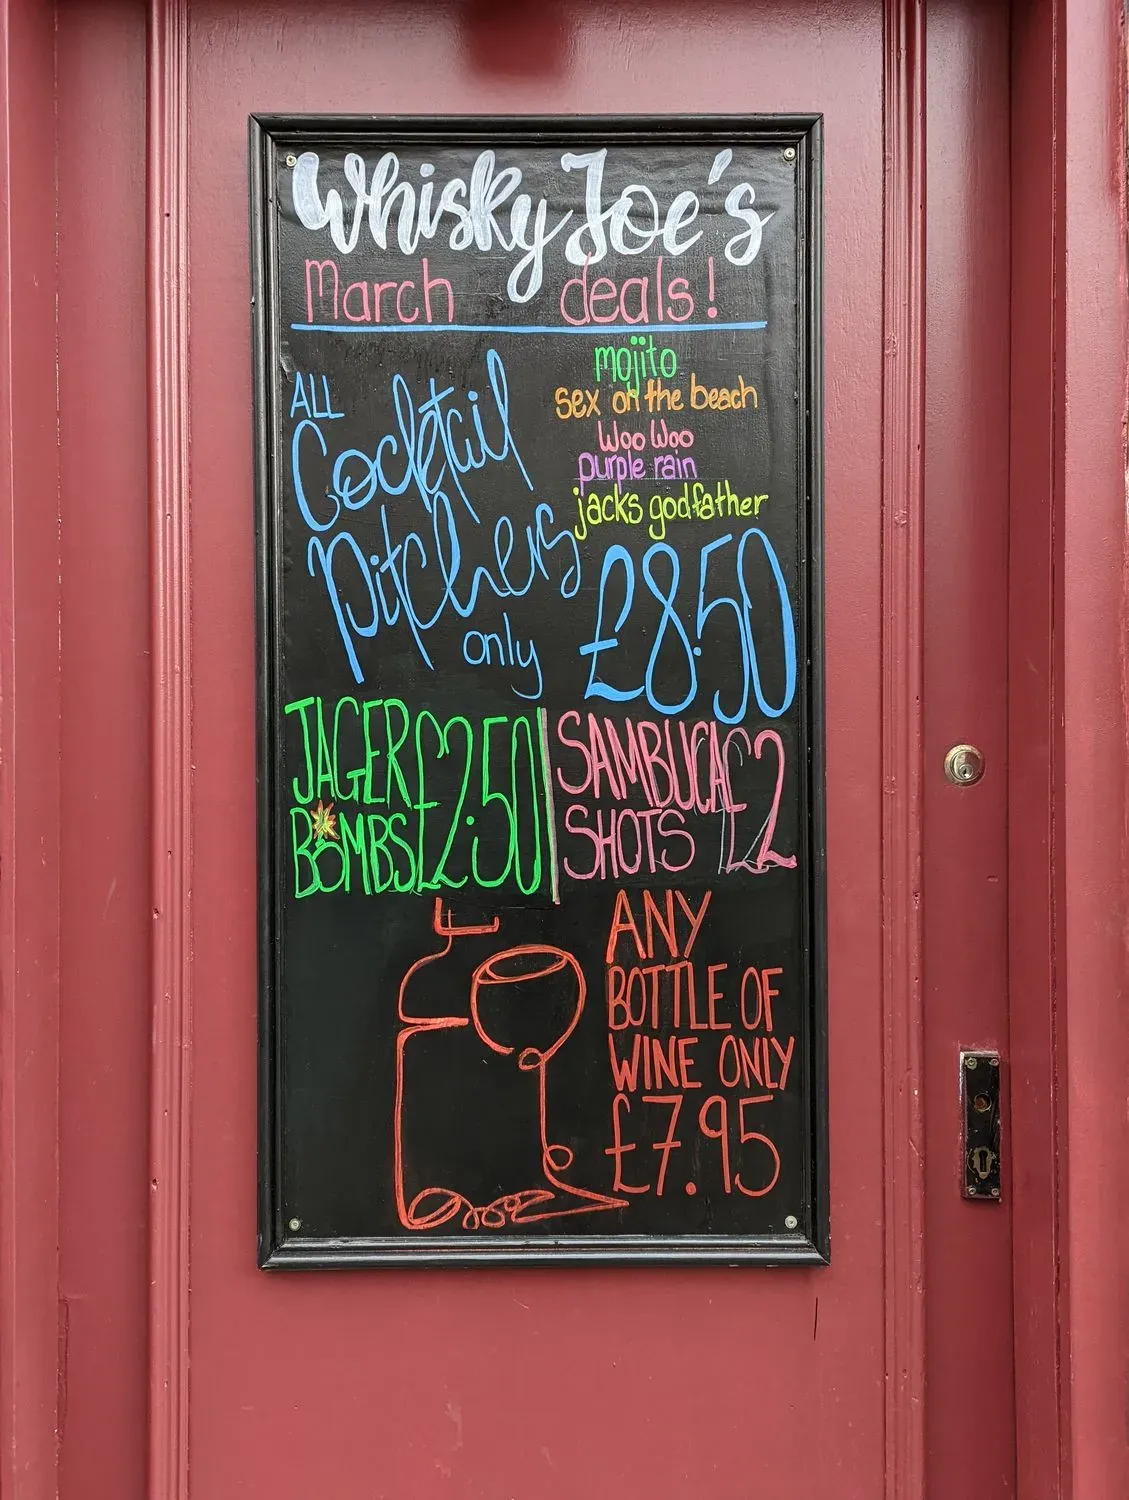 Whisky Joe's
March deals!
ALL
Cocktail
Pitchers
only
mojito
sex on the beach
Woo Woo
purple rain
jacks godfather
£8.50
JAGER
BOMBS
£2.50
SAMBUCA
SHOTS
£2
ANY
BOTTLE OF
WINE ONLY
£7.95